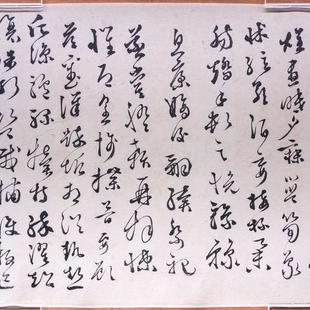 煌晝眠夕寐藍筍象
床絃歌酒讌接杯舉
觴矯手頓足悅豫
且康嫡後嗣續祭祀
蒸嘗稽顙再拜悚
懼恐惶牋牒簡要顧
答審詳骸垢想浴執熱
願涼驢騾犢特駭躍超
驤誅斬賊盜捕獲叛亡